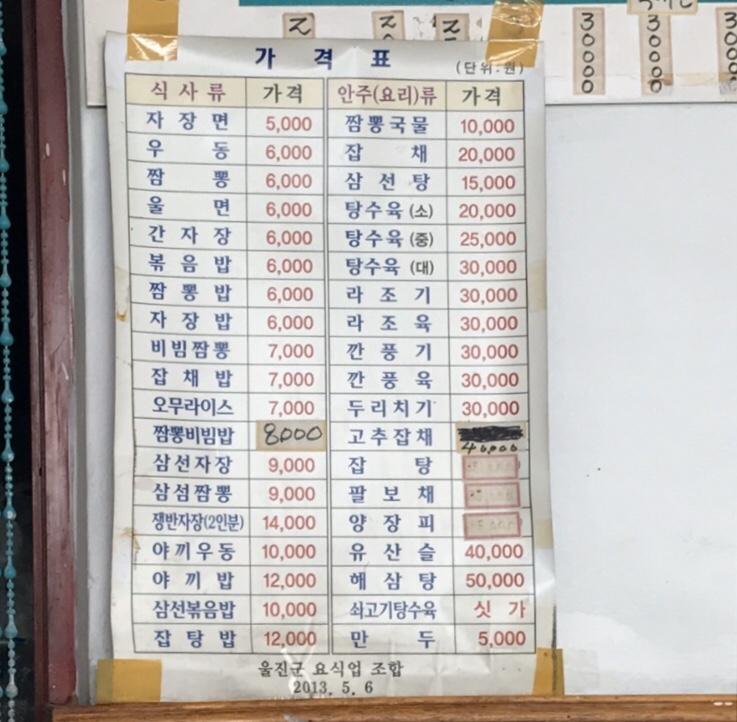 30000 30000
가 격 표
(단위:원)
식 사 류 가 격 안주(요리)류 가 격
자 장 면 5,000 짬뽕국물 10,000
우 동 6,000 잡 채 20,000
짬 뽕 6,000 삼 선 탕 15,000
울 면 6,000 탕수육 (소) 20,000
간 자 장 6,000 탕수육 (중) 25,000
볶 음 밥 6,000 탕수육 (대) 30,000
짬 뽕 밥 6,000 라 조 기 30,000
자 장 밥 6,000 라 조 육 30,000
비빔짬뽕 7,000 깐 풍 기 30,000
잡 채 밥 7,000 깐 풍 육 30,000
오무라이스 7,000 두리치기 30,000
짬뽕비빔밥 8000 고추잡채 40,000
삼선자장 9,000 잡 탕
삼섬짬뽕 9,000 팔 보 채
쟁반자장(2인분) 14,000 양 장 피
야끼우동 10,000 유 산 슬 40,000
야 끼 밥 12,000 해 삼 탕 50,000
삼선볶음밥 10,000 쇠고기탕수육 싯 가
잡 탕 밥 12,000 만 두 5,000
울진군 요식업 조합
2013. 5. 6